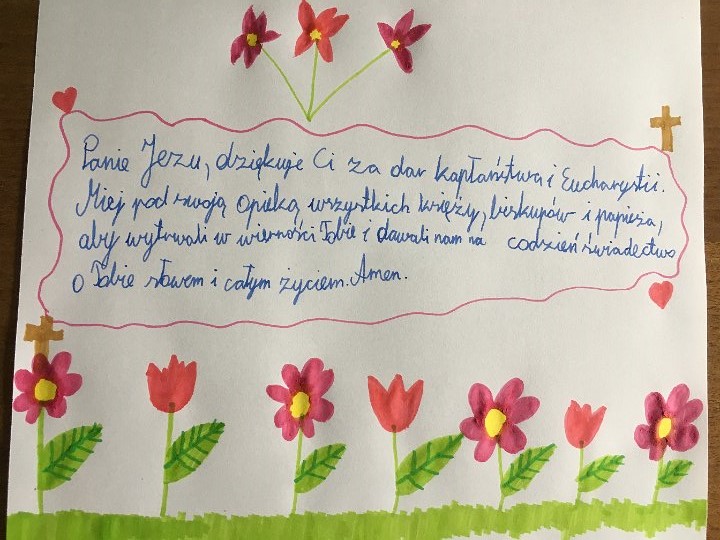 Panie Jezu, dziękuje Ci za dar kapłaństwa i Eucharystii.
Miej pod swoją opieką wszystkich księży, biskupów i papieża,
aby wytrwali w wierności Tobie i dawali nam na codzień świadectwo
o Tobie słowem i całym życiem. Amen.